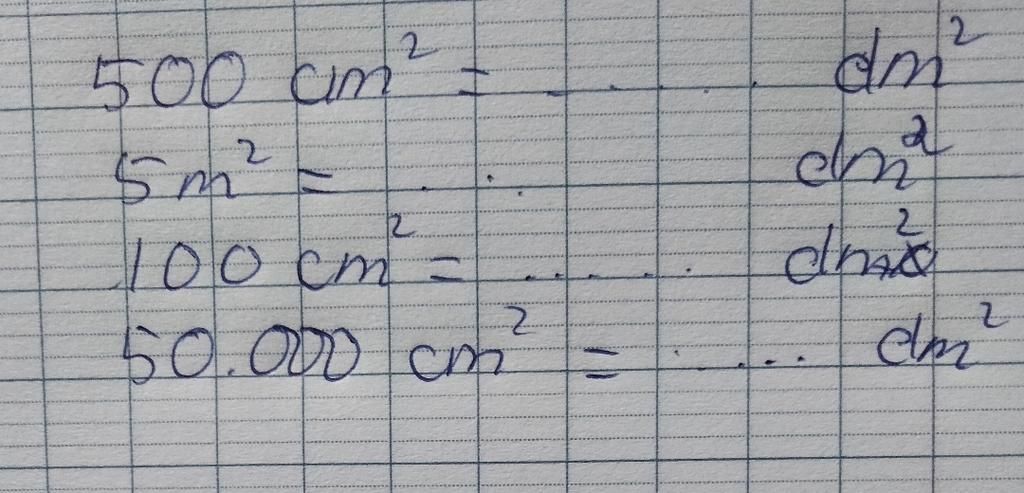 500 cm² = ..... dm²
5 m² = ... dm²
100 cm² = ..... dm²
50.000 cm² = .... dm²